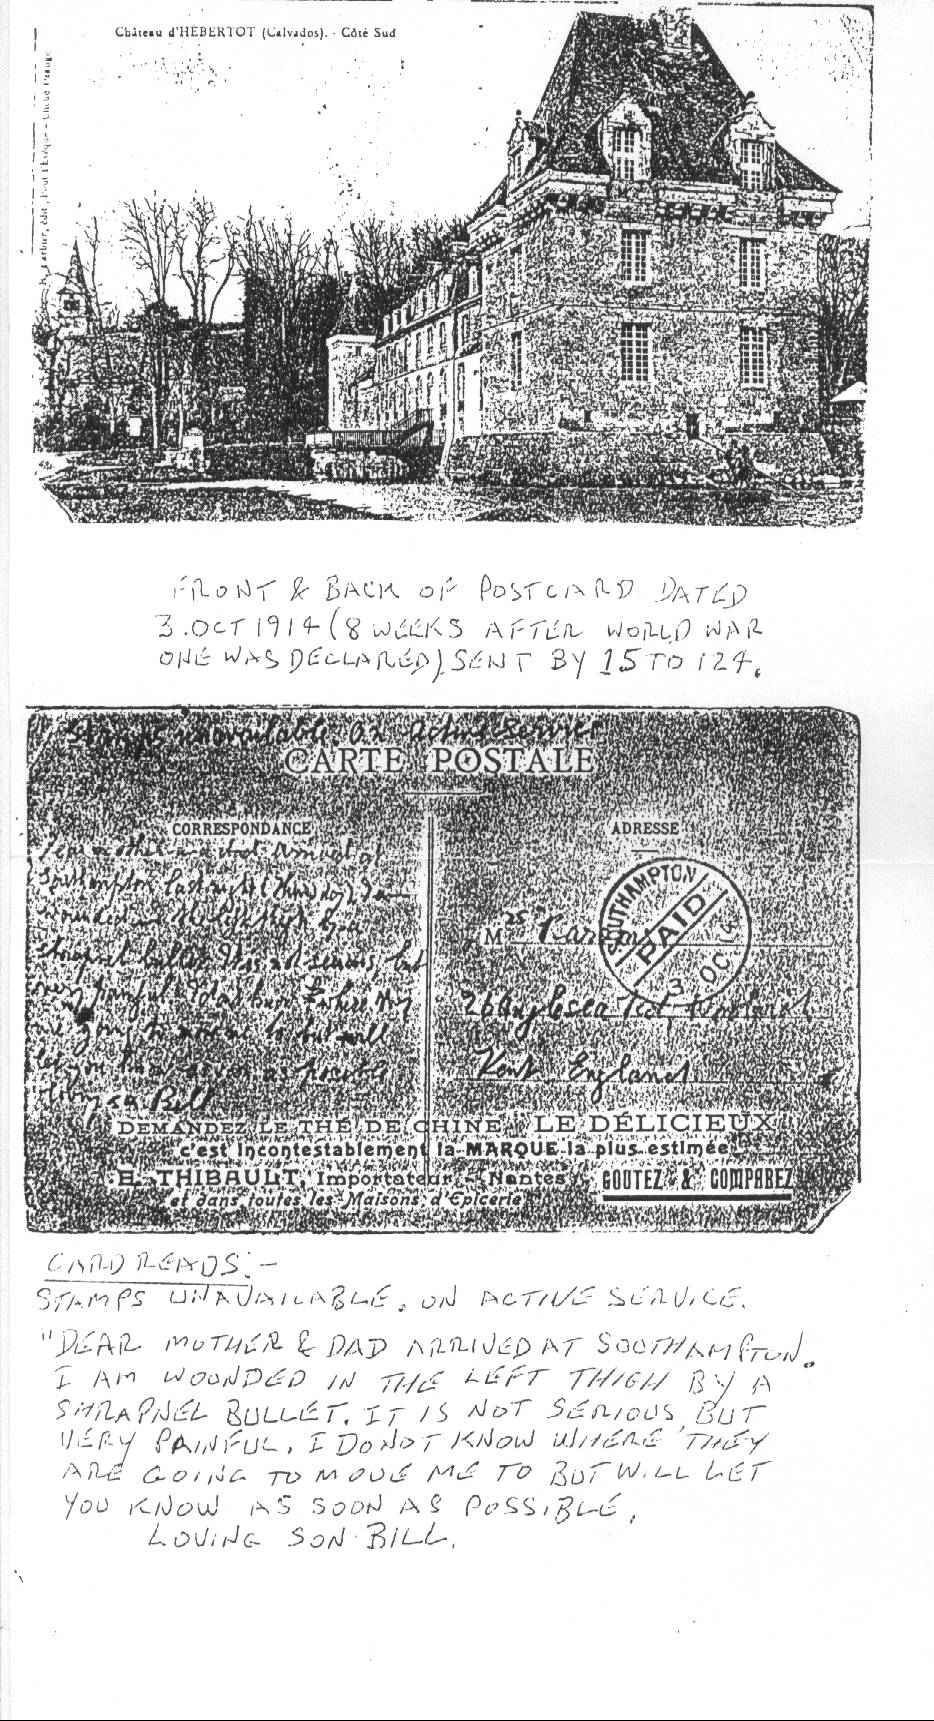 Château d'HÉBERTOT (Calvados). - Côté Sud
édit., Pont-l'Evêque - Cliché
FRONT & BACK OF POSTCARD DATED
3.OCT 1914 (8 WEEKS AFTER WORLD WAR
ONE WAS DECLARED) SENT BY 15 TO 124.
Stamps unavailable on Active Service
CARTE POSTALE
CORRESPONDANCE
ADRESSE
arrived at
Southampton last night (Thursday) I am
wounded in the left thigh by a
shrapnel bullet. It is not serious, but
very painful. I don't know where they
are going to move me to but will
let you know as soon as possible
Loving son Bill
SOUTHAMPTON
PAID
3 OC 14
M
26 Anglesea Rd, Woolwich
Kent England
DEMANDEZ LE THÉ DE CHINE "LE DÉLICIEUX"
c'est incontestablement la MARQUE la plus estimée
E. THIBAULT, Importateur - Nantes
GOUTEZ & COMPAREZ
et dans toutes les Maisons d'Epicerie
CARD READS:-
STAMPS UNAVAILABLE. ON ACTIVE SERVICE.
"DEAR MOTHER & DAD ARRIVED AT SOUTHAMPTON.
I AM WOUNDED IN THE LEFT THIGH BY A
SHRAPNEL BULLET. IT IS NOT SERIOUS, BUT
VERY PAINFUL. I DO NOT KNOW WHERE THEY
ARE GOING TO MOVE ME TO BUT WILL LET
YOU KNOW AS SOON AS POSSIBLE.
LOVING SON BILL.